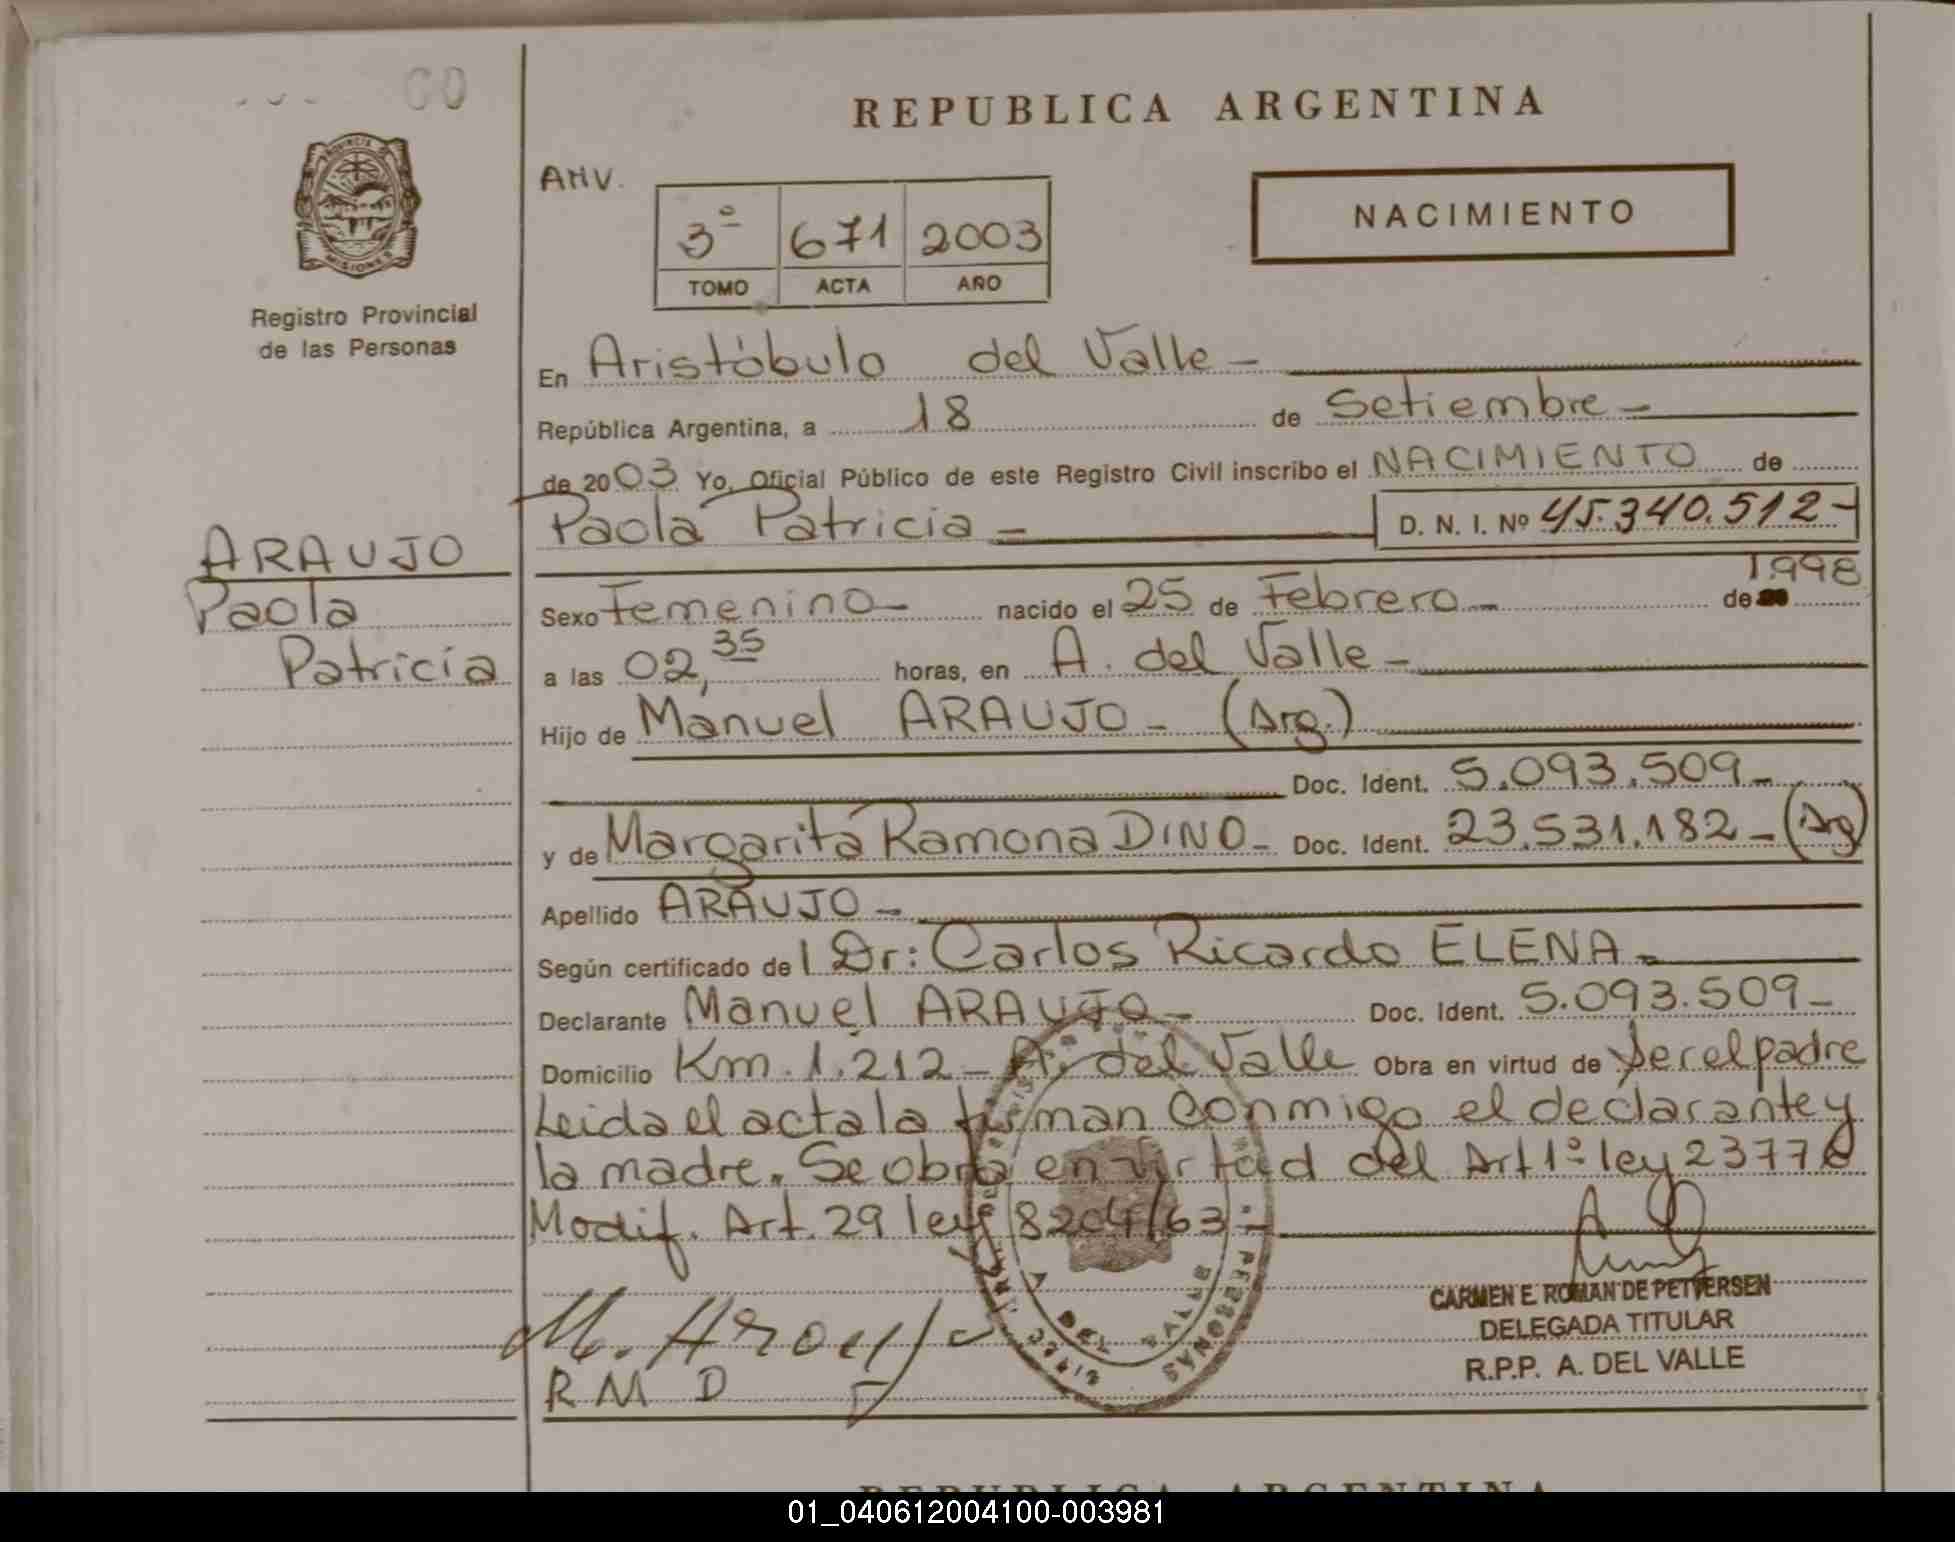 REPUBLICA ARGENTINA
PROVINCIA DE MISIONES
Registro Provincial
de las Personas
ANV.
3º 671 2003
TOMO ACTA AÑO
NACIMIENTO
En Aristóbulo del Valle -
República Argentina, a 18 de Setiembre -
de 2003 Yo, Oficial Público de este Registro Civil inscribo el NACIMIENTO de
Paola Patricia - D. N. I. Nº 45.340.512-
ARAUJO
Paola
Patricia
Sexo Femenino - nacido el 25 de Febrero - de 1.998
a las 02,35 horas, en A. del Valle -
Hijo de Manuel ARAUJO - (Arg.)
Doc. Ident. 5.093.509-
y de Margarita Ramona DINO - Doc. Ident. 23.531.182 - (Arg)
Apellido ARAUJO -
Según certificado del Dr: Carlos Ricardo ELENA -
Declarante Manuel ARAUJO - Doc. Ident. 5.093.509-
Domicilio Km. 1.212 - A. del Valle Obra en virtud de Ser el padre
Leida el acta la firman conmigo el declarante y
la madre. Se obra en virtud del Art 1º ley 23776
Modif. Art. 29 ley 8204/63 -
M. Araujo
R M D
CARMEN E. ROMAN DE PETTERSEN
DELEGADA TITULAR
R.P.P. A. DEL VALLE
REPUBLICA ARGENTINA
01_040612004100-003981